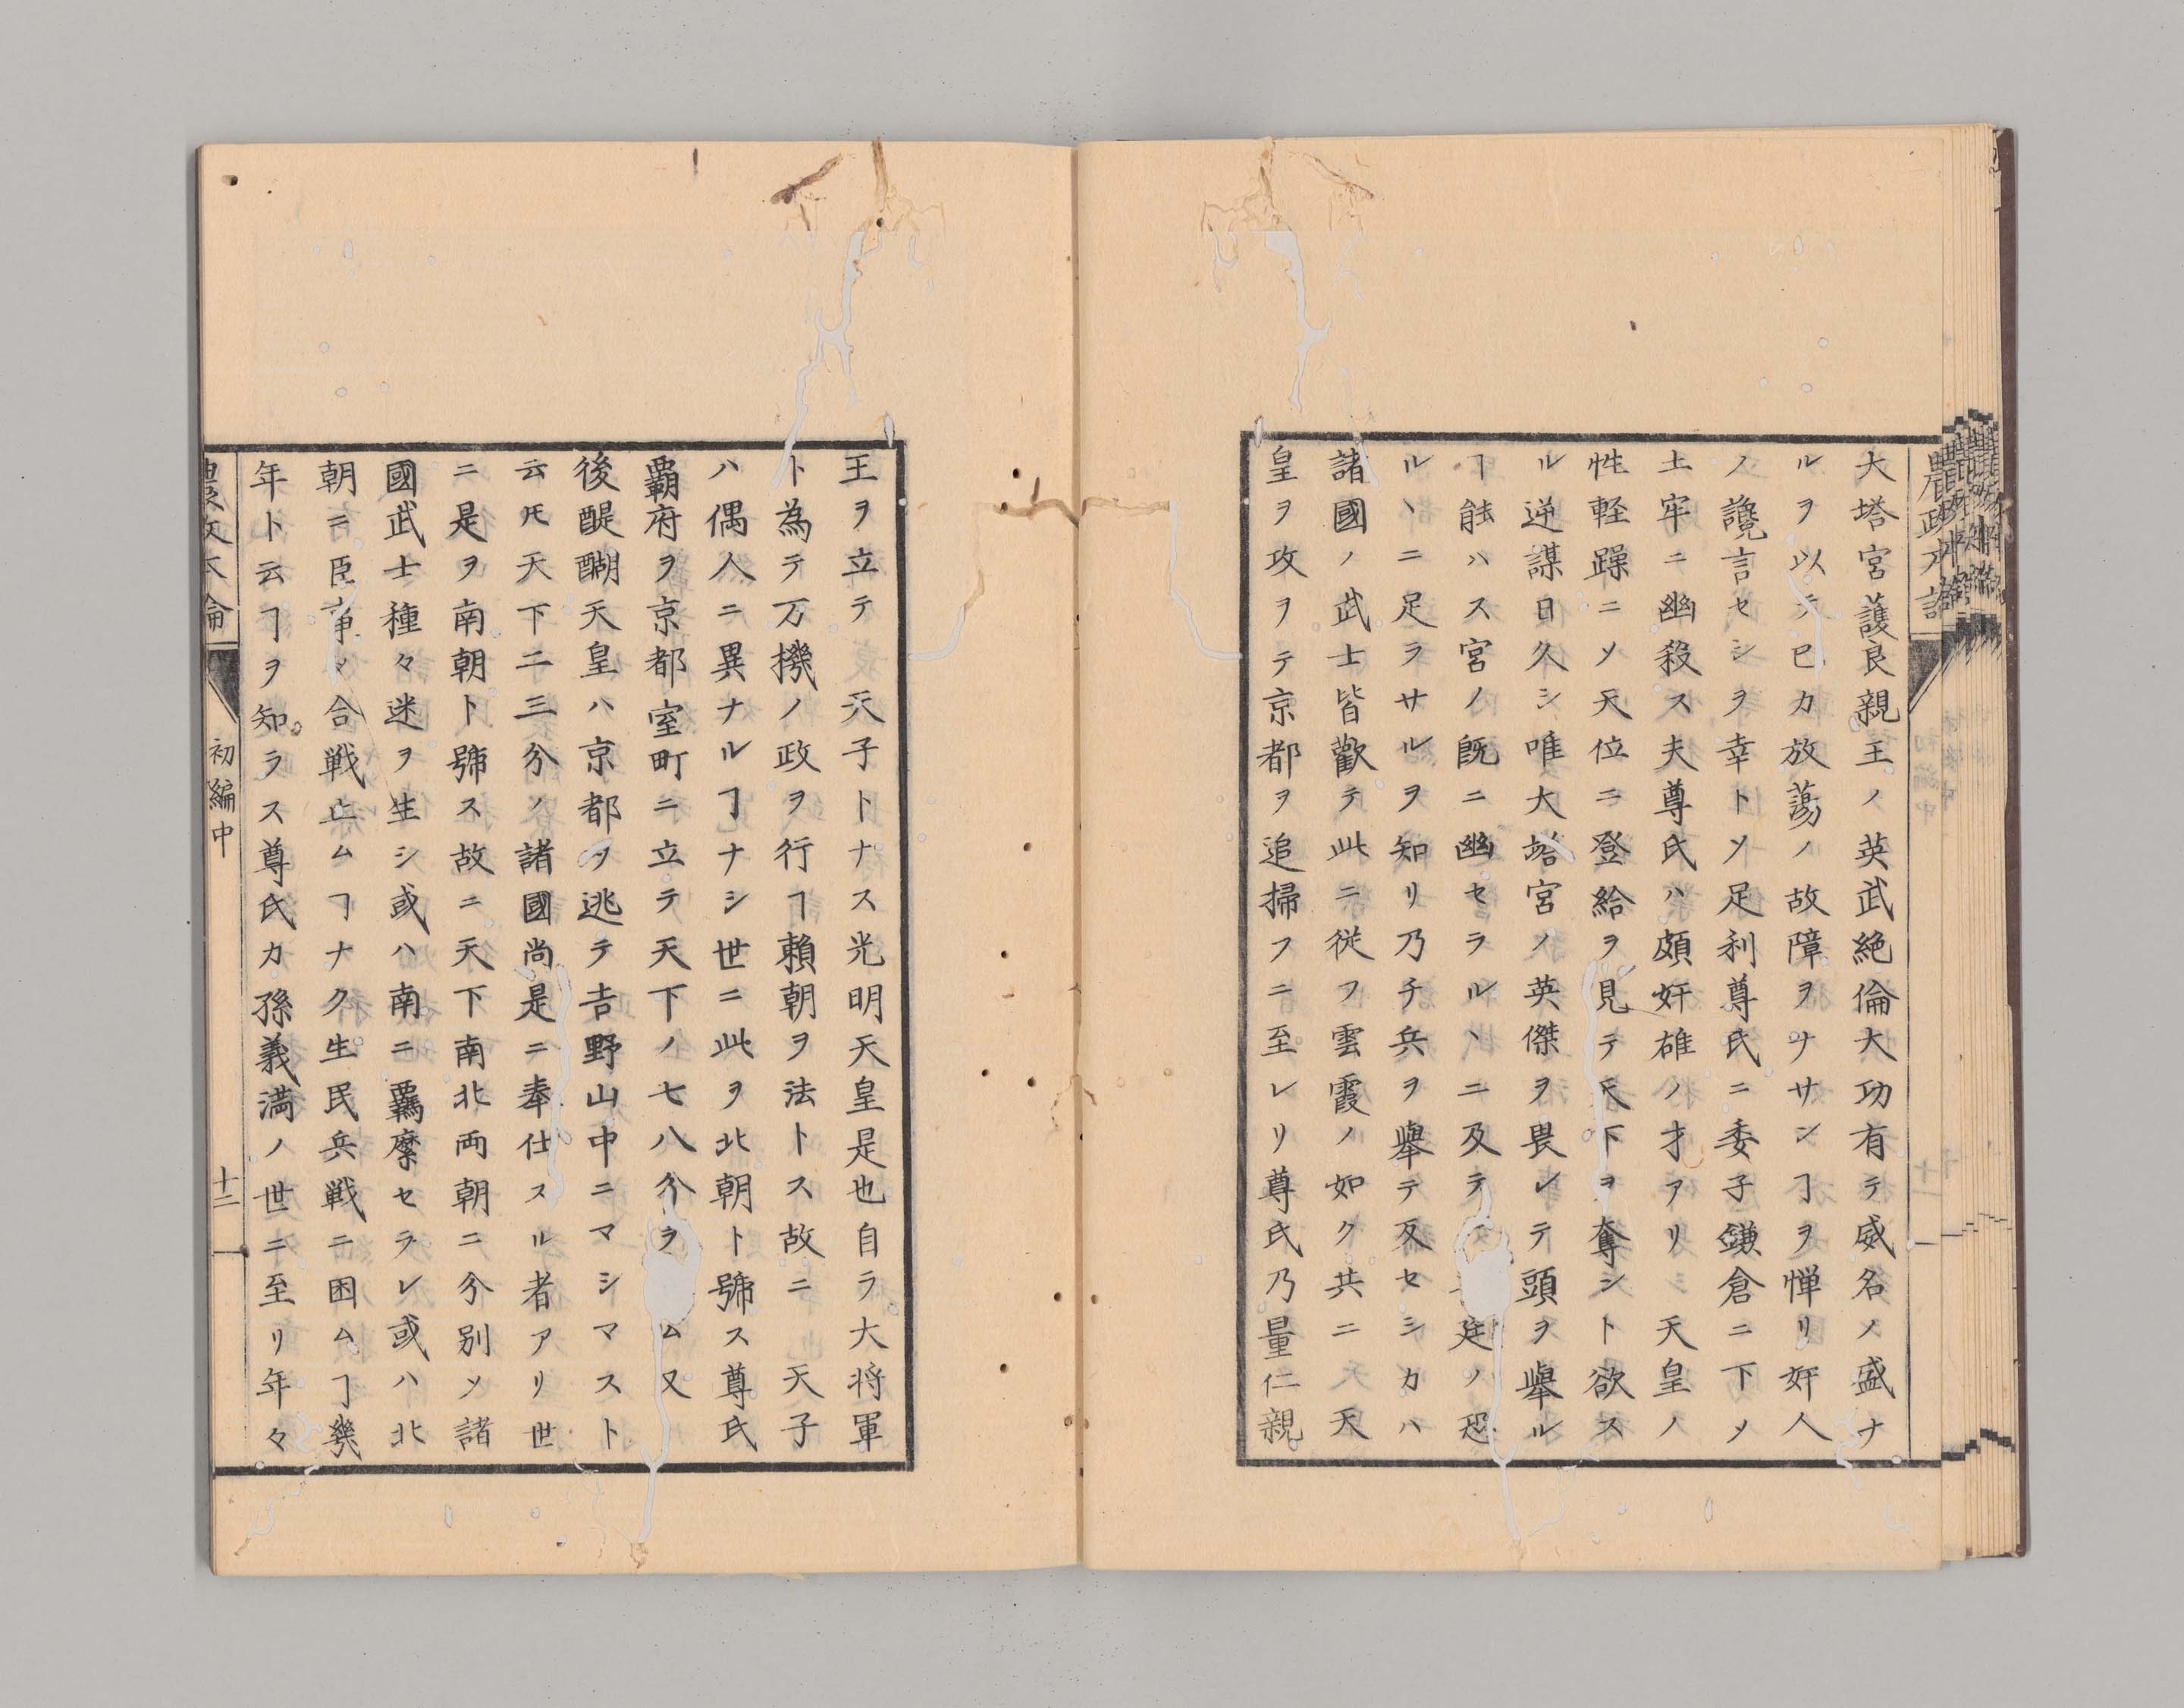 大塔宮護良親王ノ英武絶倫大功有テ威名ノ盛ナ
ルヲ以テ已カ放蕩ノ故障ヲナサンヿヲ惮リ奸人
ノ讒言セシヲ幸トソ足利尊氏ニ委子鎌倉ニ下メ
土牢ニ幽殺ス夫尊氏ハ頗奸雄ノ才アリシ天皇ノ
性軽躁ニソ天位ニ登給ヲ見テ天下ヲ奪シト欲ス
ル逆謀日久シ唯大塔宮ノ英傑ヲ畏レテ頭ヲ擧ル
ヿ能ハス宮ノ既ニ幽セラルヽニ及テ廷ノ恐
ルヽニ足ラサルヲ知リ乃チ兵ヲ擧テ反セシカハ
諸國ノ武士皆歡テ此ニ従フ雲霞ノ如ク共ニ天
皇ヲ攻ヲテ京都ヲ追掃フニ至レリ尊氏乃量仁親
王ヲ立テ天子トナス光明天皇是也自ラ大将軍
ト為テ万機ノ政ヲ行ヿ頼朝ヲ法トス故ニ天子
ハ偶人ニ異ナルヿナシ世ニ此ヲ北朝ト號ス尊氏
覇府ヲ京都室町ニ立テ天下ノ七八分ヲム又
後醍醐天皇ハ京都ヲ逃テ吉野山中ニマシマスト
云𪜈天下二三分ノ諸國尚是ニ奉仕スル者アリ世
ニ是ヲ南朝ト號ス故ニ天下南北両朝ニ分別ソ諸
國武士種々迷ヲ生シ或ハ南ニ覊縻セラレ或ハ北
朝ニ臣事メ合戦止ムヿナク生民兵戦ニ困ムヿ幾
年ト云ヿヲ知ラス尊氏カ孫義満ノ世ニ至リ年々
初編中
十二